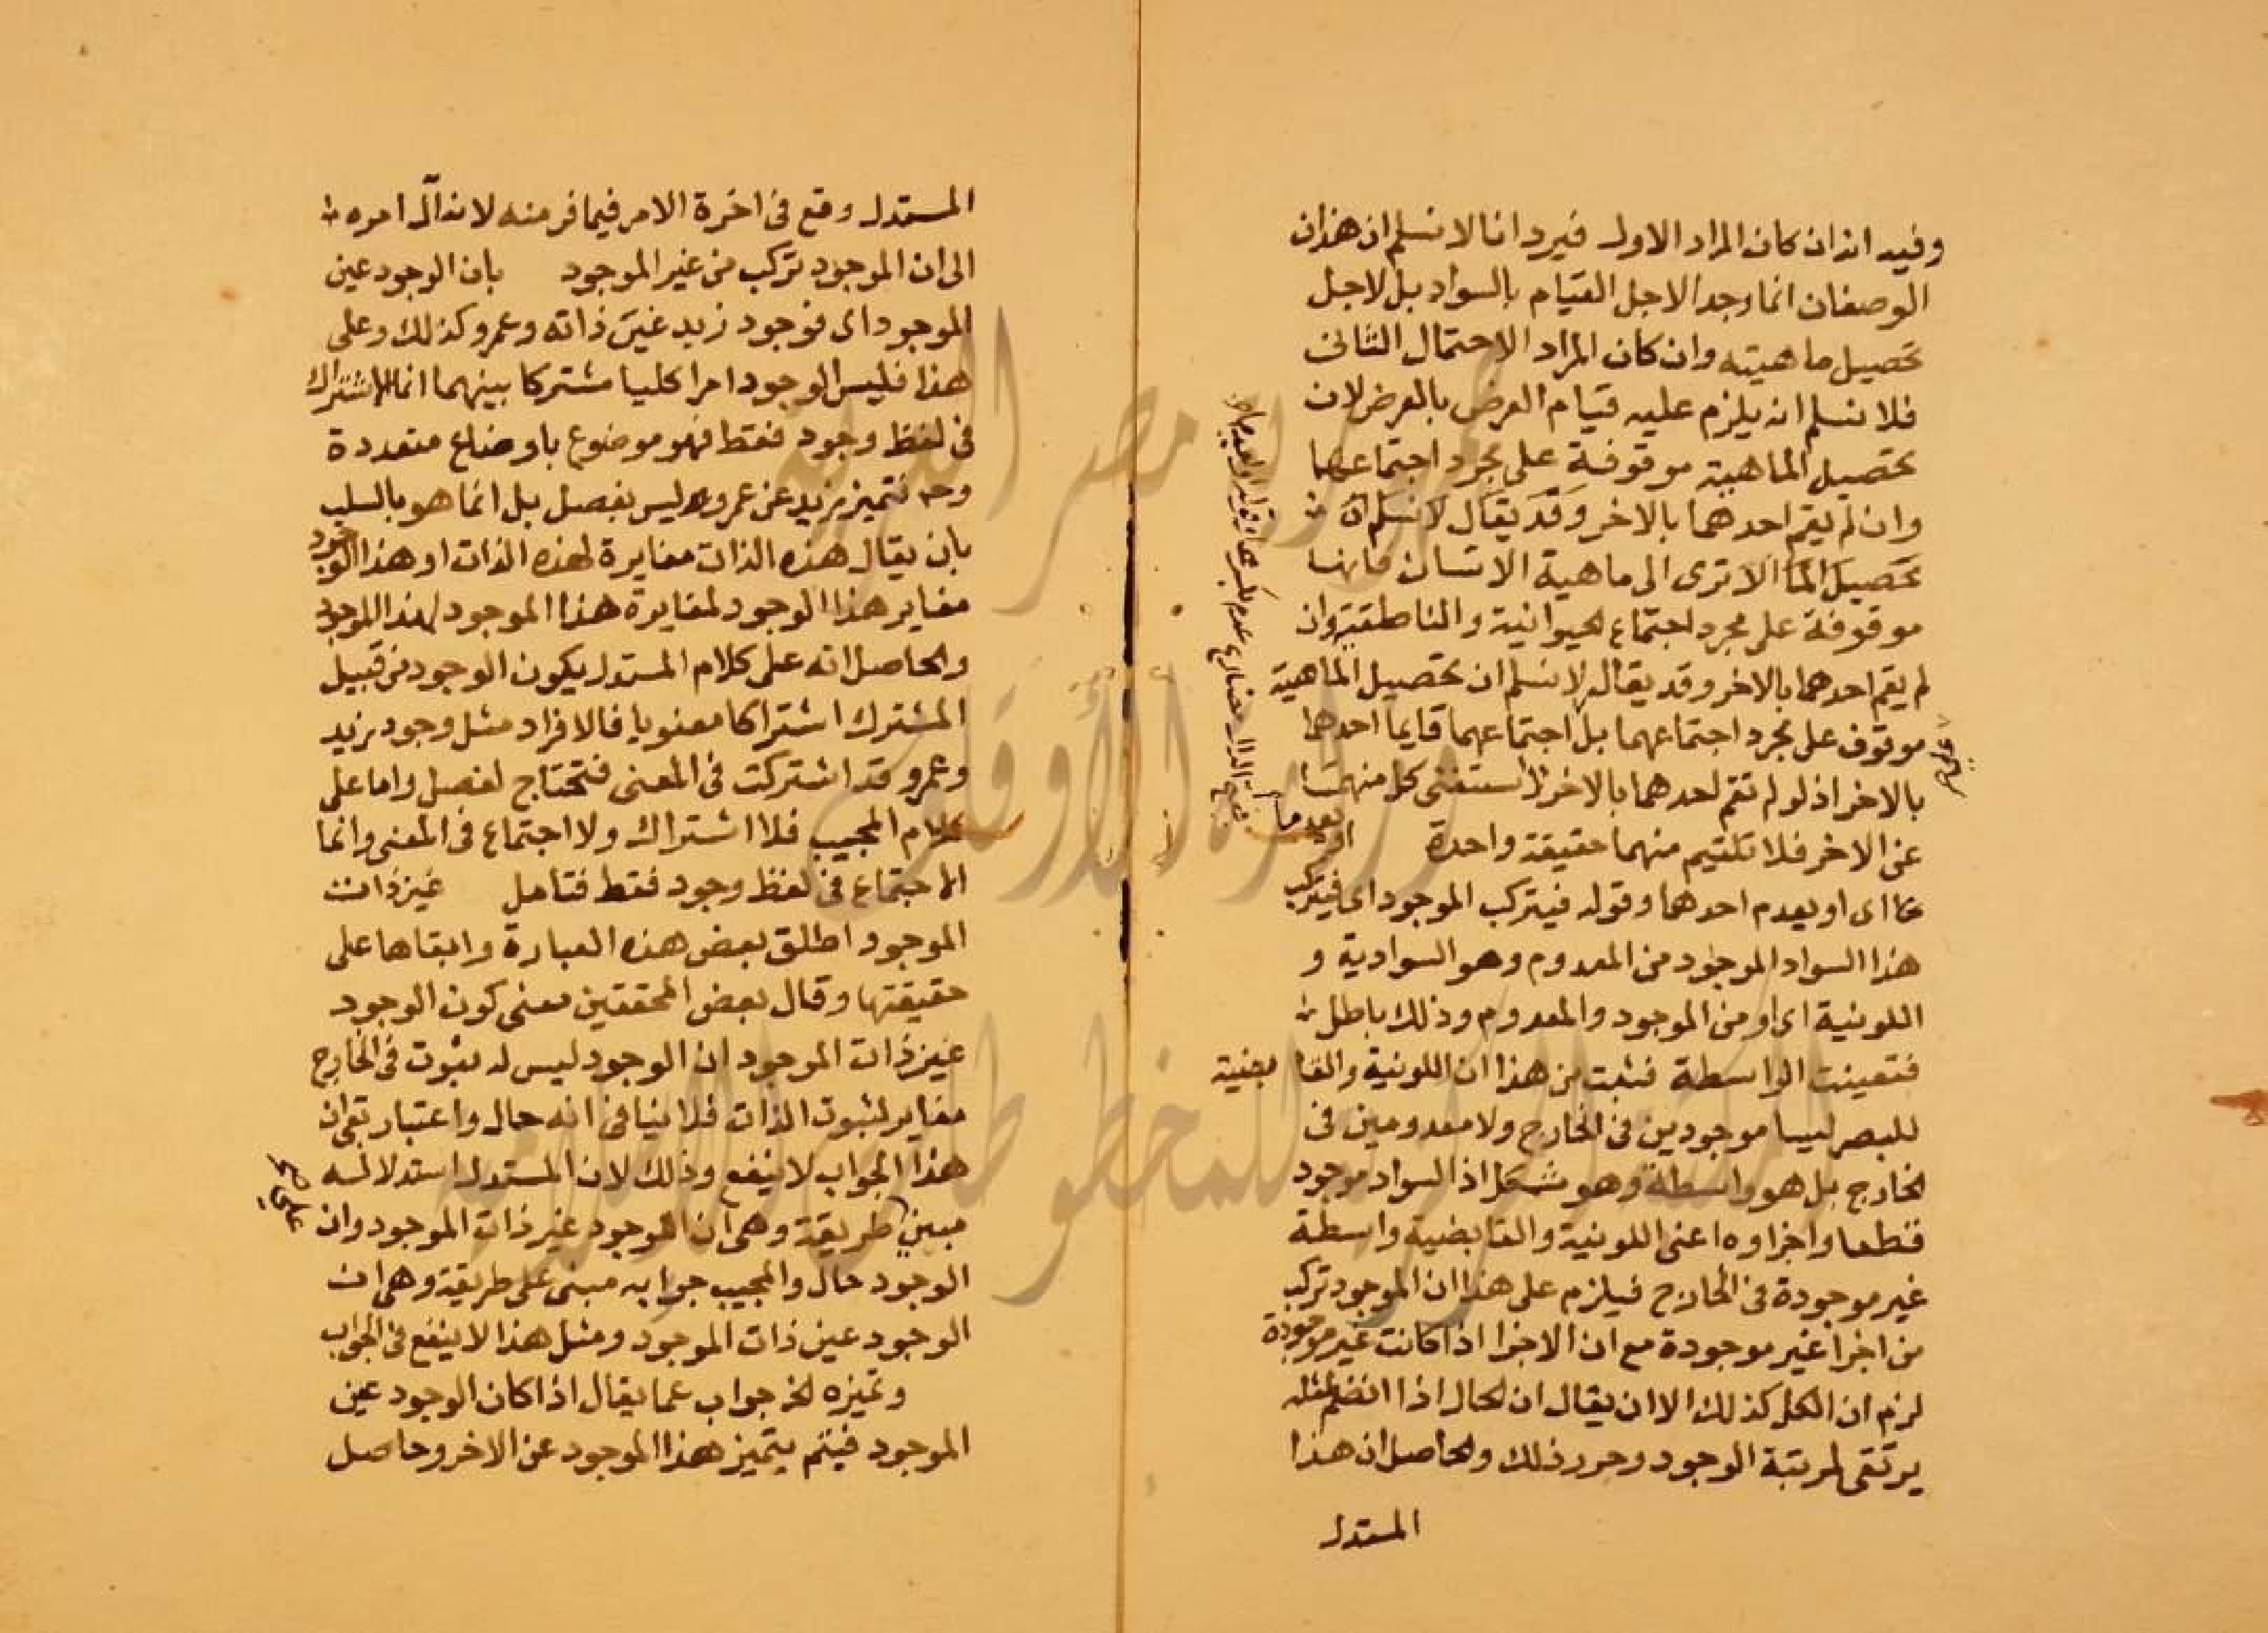 وفيه انه ان كان المراد الاول فيرد انا لا نسلم ان هذان
الوصفان انما وجدا لاجل القيام بالسواد بل لاجل
تحصيل ماهيته وان كان المراد الاحتمال الثانى
فلا نسلم انه يلزم عليه قيام العرض بالعرض لان
تحصيل الماهية موقوفة على مجرد اجتماعهما
وان لم يقم احدهما بالاخر وقد يقال لا نسلم ان
تحصيل الما الا ترى الى ماهية الانسان فانها
موقوفة على مجرد اجتماع الحيوانية والناطقية وان
لم يقم احدهما بالاخر وقد يقال لا نسلم ان تحصيل الماهية
موقوف على مجرد اجتماعهما بل اجتماعهما قايما احدهما
بالاخر اذ لو لم تقم احدهما بالاخر لاستغنى كل منهما
عن الاخر فلا تلتئيم منهما حقيقة واحدة او يعدما
عما اى او يعدم احدهما وقوله فيتركب الموجود اى فيتركب
هذا السواد الموجود من المعدوم وهو السوادية و
اللونية اى او من الموجود والمعدوم وذلك باطل
فتعينت الواسطة فثبت من هذا ان اللونية والقابضية
للبصر ليسا موجودين فى الخارج ولا معدومين فى
الخارج بل هو واسطة وهو شكل اذ السواد موجود
قطعا واجزاوه اعنى اللونية والقابضية واسطة
غير موجودة فى الخارج فيلزم على هذا ان الموجود تركب
من اجزا غير موجودة مع ان الاجزا اذا كانت غير موجودة
لزم ان الكل كذلك الا ان يقال ان الحال اذا انضم لمثله
يرتقى لمرتبة الوجود وحرر ذلك والحاصل ان هذا
المستدل
المستدل وقع فى اخرة الامر فيما فر منه لانه آل امره
الى ان الموجود تركب من غير الموجود بان الوجود عين
الموجود اى فوجود زيد عين ذاته وعمرو كذلك وعلى
هذا فليس الوجود امرا كليا مشتركا بينهما انما الاشتراك
فى لفظ وجود فقط فهو موضوع باوضاع متعددة
وح فتميز زيد عن عمرو ليس بفصل بل انما هو بالسلب
بان يقال هذه الذات مغايرة لهذه الذات او هذا الوجود
مغاير هذا الوجود لمغايرة هذا الموجود لهذا الموجود
والحاصل انه على كلام المستدل يكون الوجود من قبيل
المشترك اشتراكا معنويا فالافراد مثل وجود زيد
وعمرو قد اشتركت فى المعنى فتحتاج لفصل واما على
كلام المجيب فلا اشتراك ولا اجتماع فى المعنى وانما
الاجتماع فى لفظ وجود فقط فتامل غير ذات
الموجود اطلق بعض هذه العبارة وابقاها على
حقيقتها وقال بعض المحققين معنى كون الوجود
غير ذات الموجود ان الوجود ليس له ثبوت فى الخارج
مغاير لثبوت الذات فلا ينافى انه حال واعتبار بقى ان
هذا الجواب لا ينفع وذلك لان المستدل استدلاله
مبنى طريقة وهى ان الوجود غير ذات الموجود وان
الوجود حال والمجيب جوابه مبنى على طريقة وهى ان
الوجود عين ذات الموجود ومثل هذا لا ينفع فى الجواب
وتميزه الخ جواب عما يقال اذا كان الوجود عين
الموجود فيتم يتميز هذا الموجود عن الاخر وحاصل
على صح